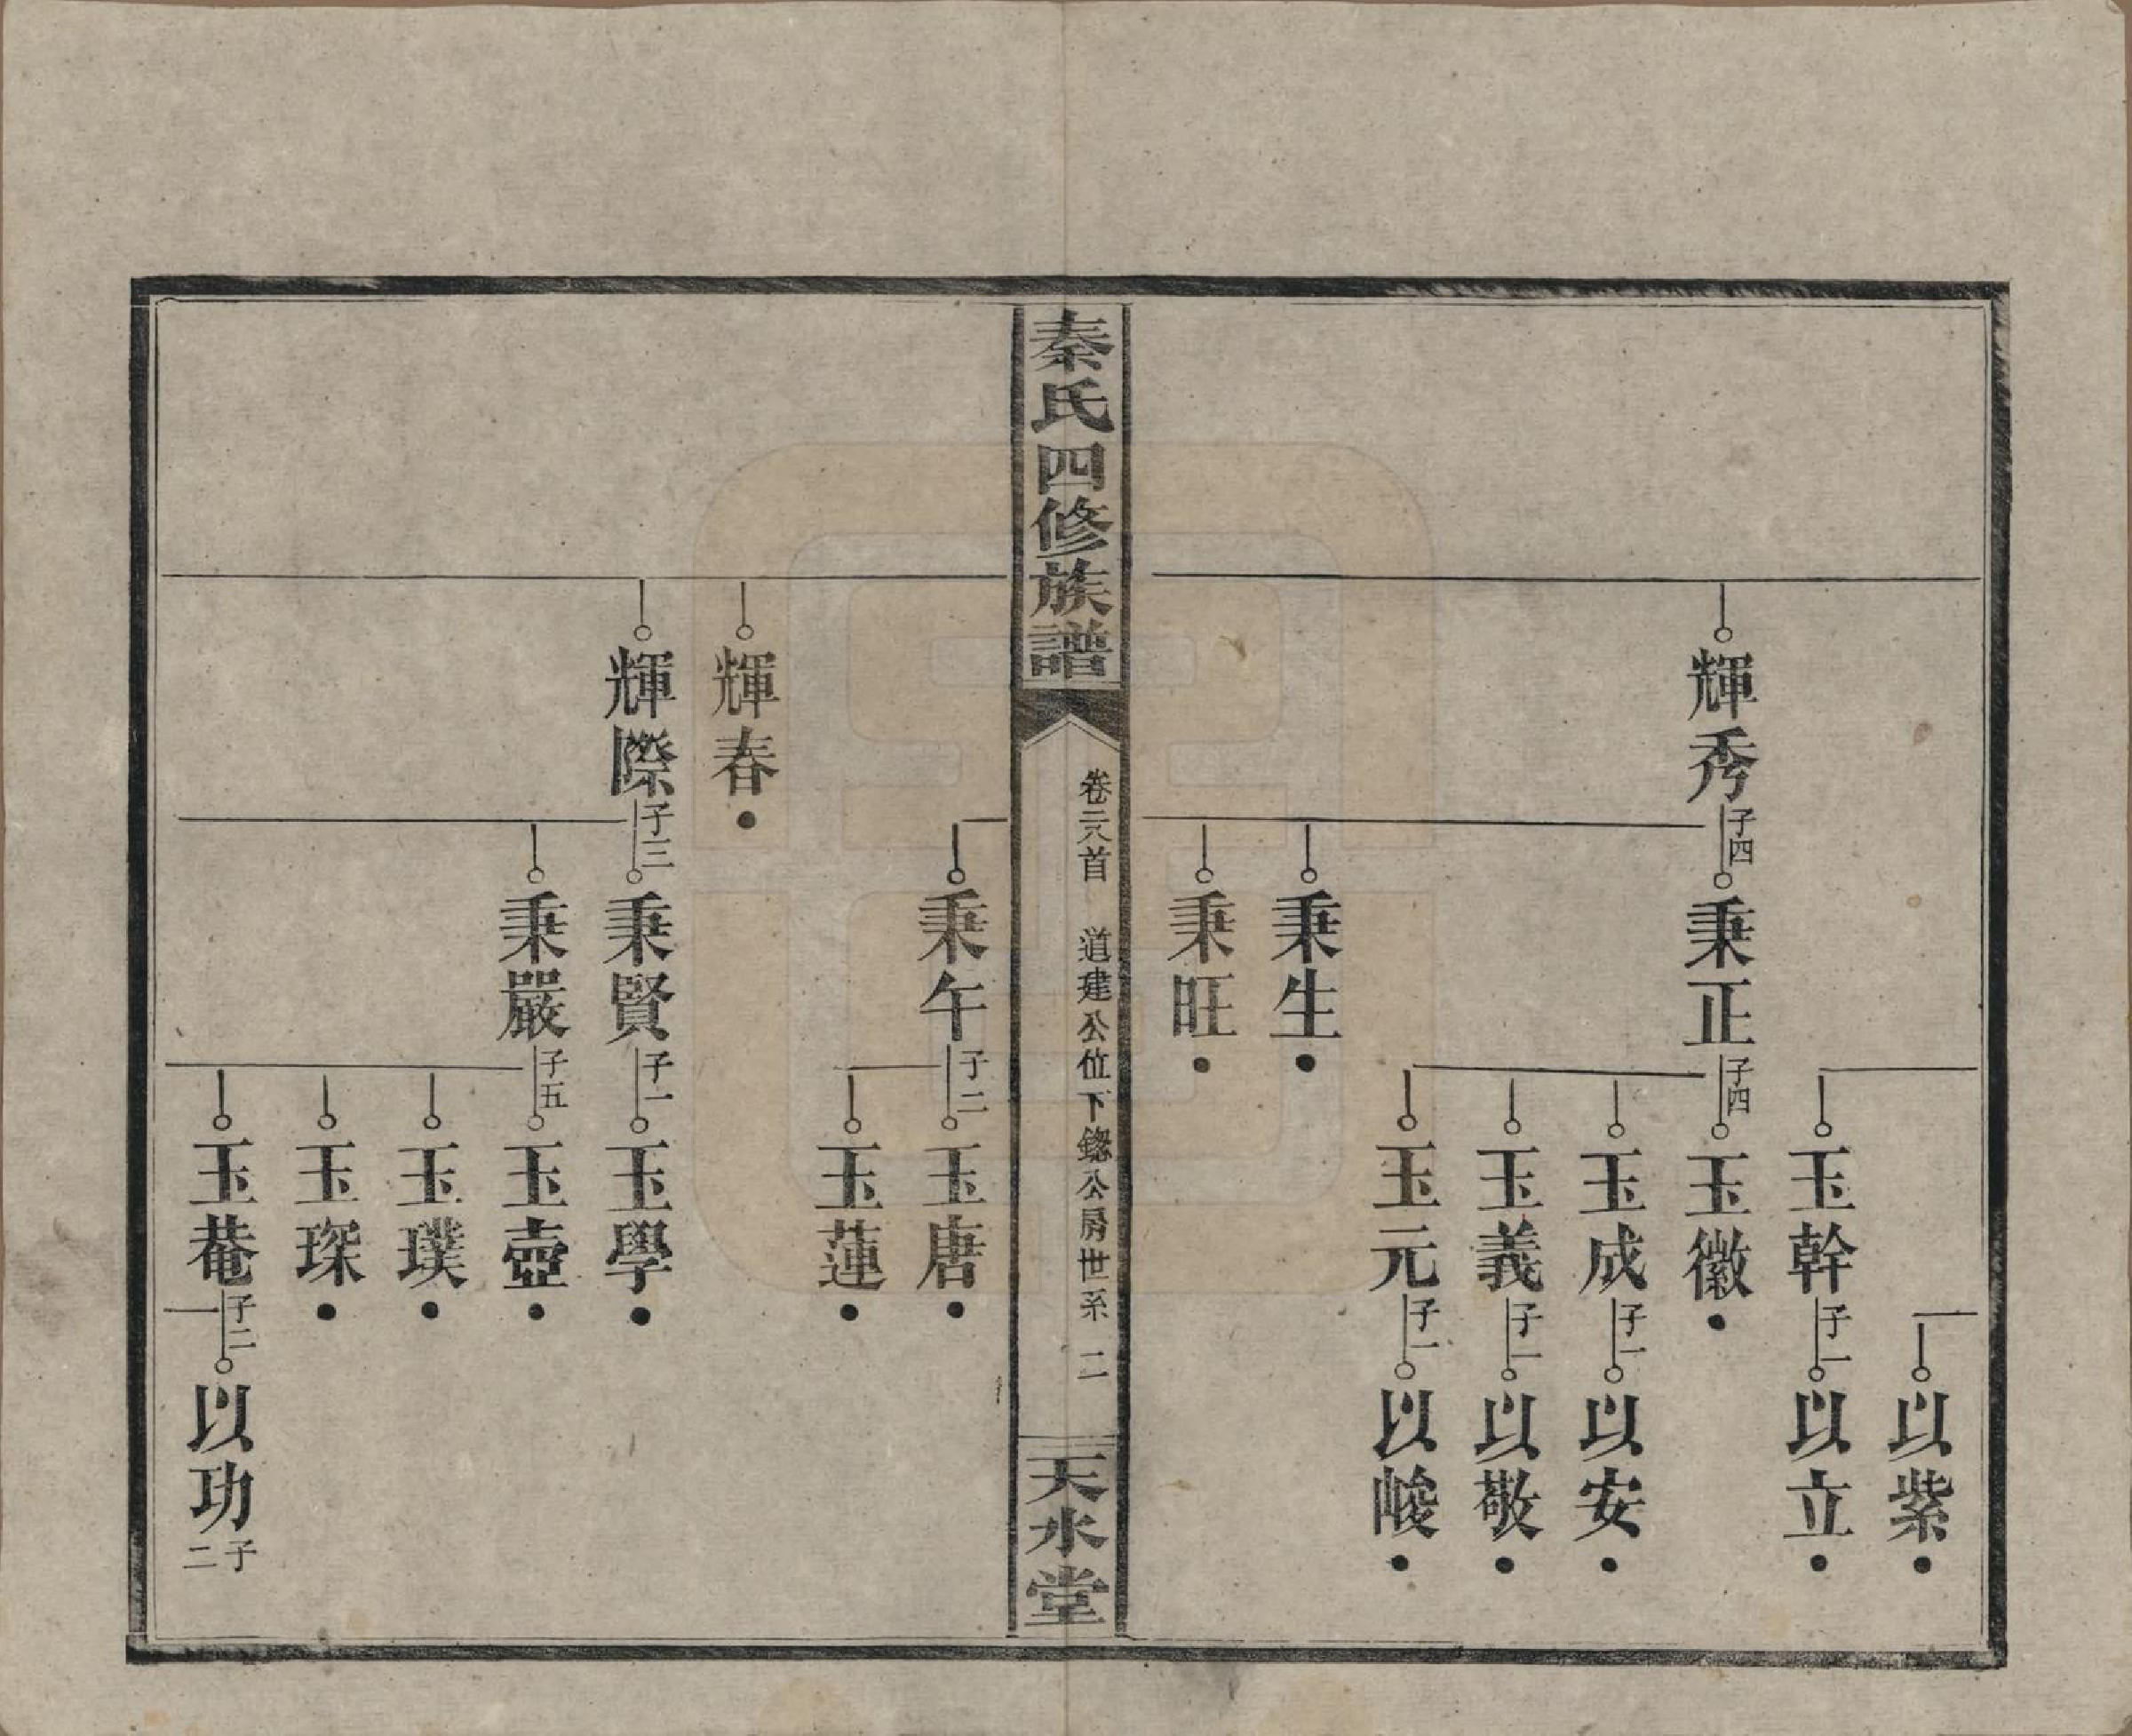 以紫
玉幹 子一 以立
輝秀 子四 秉正 子四 玉徽
玉成 子一 以安
玉義 子一 以敬
玉元 子一 以峻
秉生
秉旺
秦氏四修族譜
卷二八首 道建公位下鍯公房世系 二
天水堂
秉午 子二 玉唐
玉蓮
輝春
輝際 子三 秉賢 子一 玉學
秉嚴 子五 玉壺
玉璞
玉琛
玉菴 子二 以功 子二